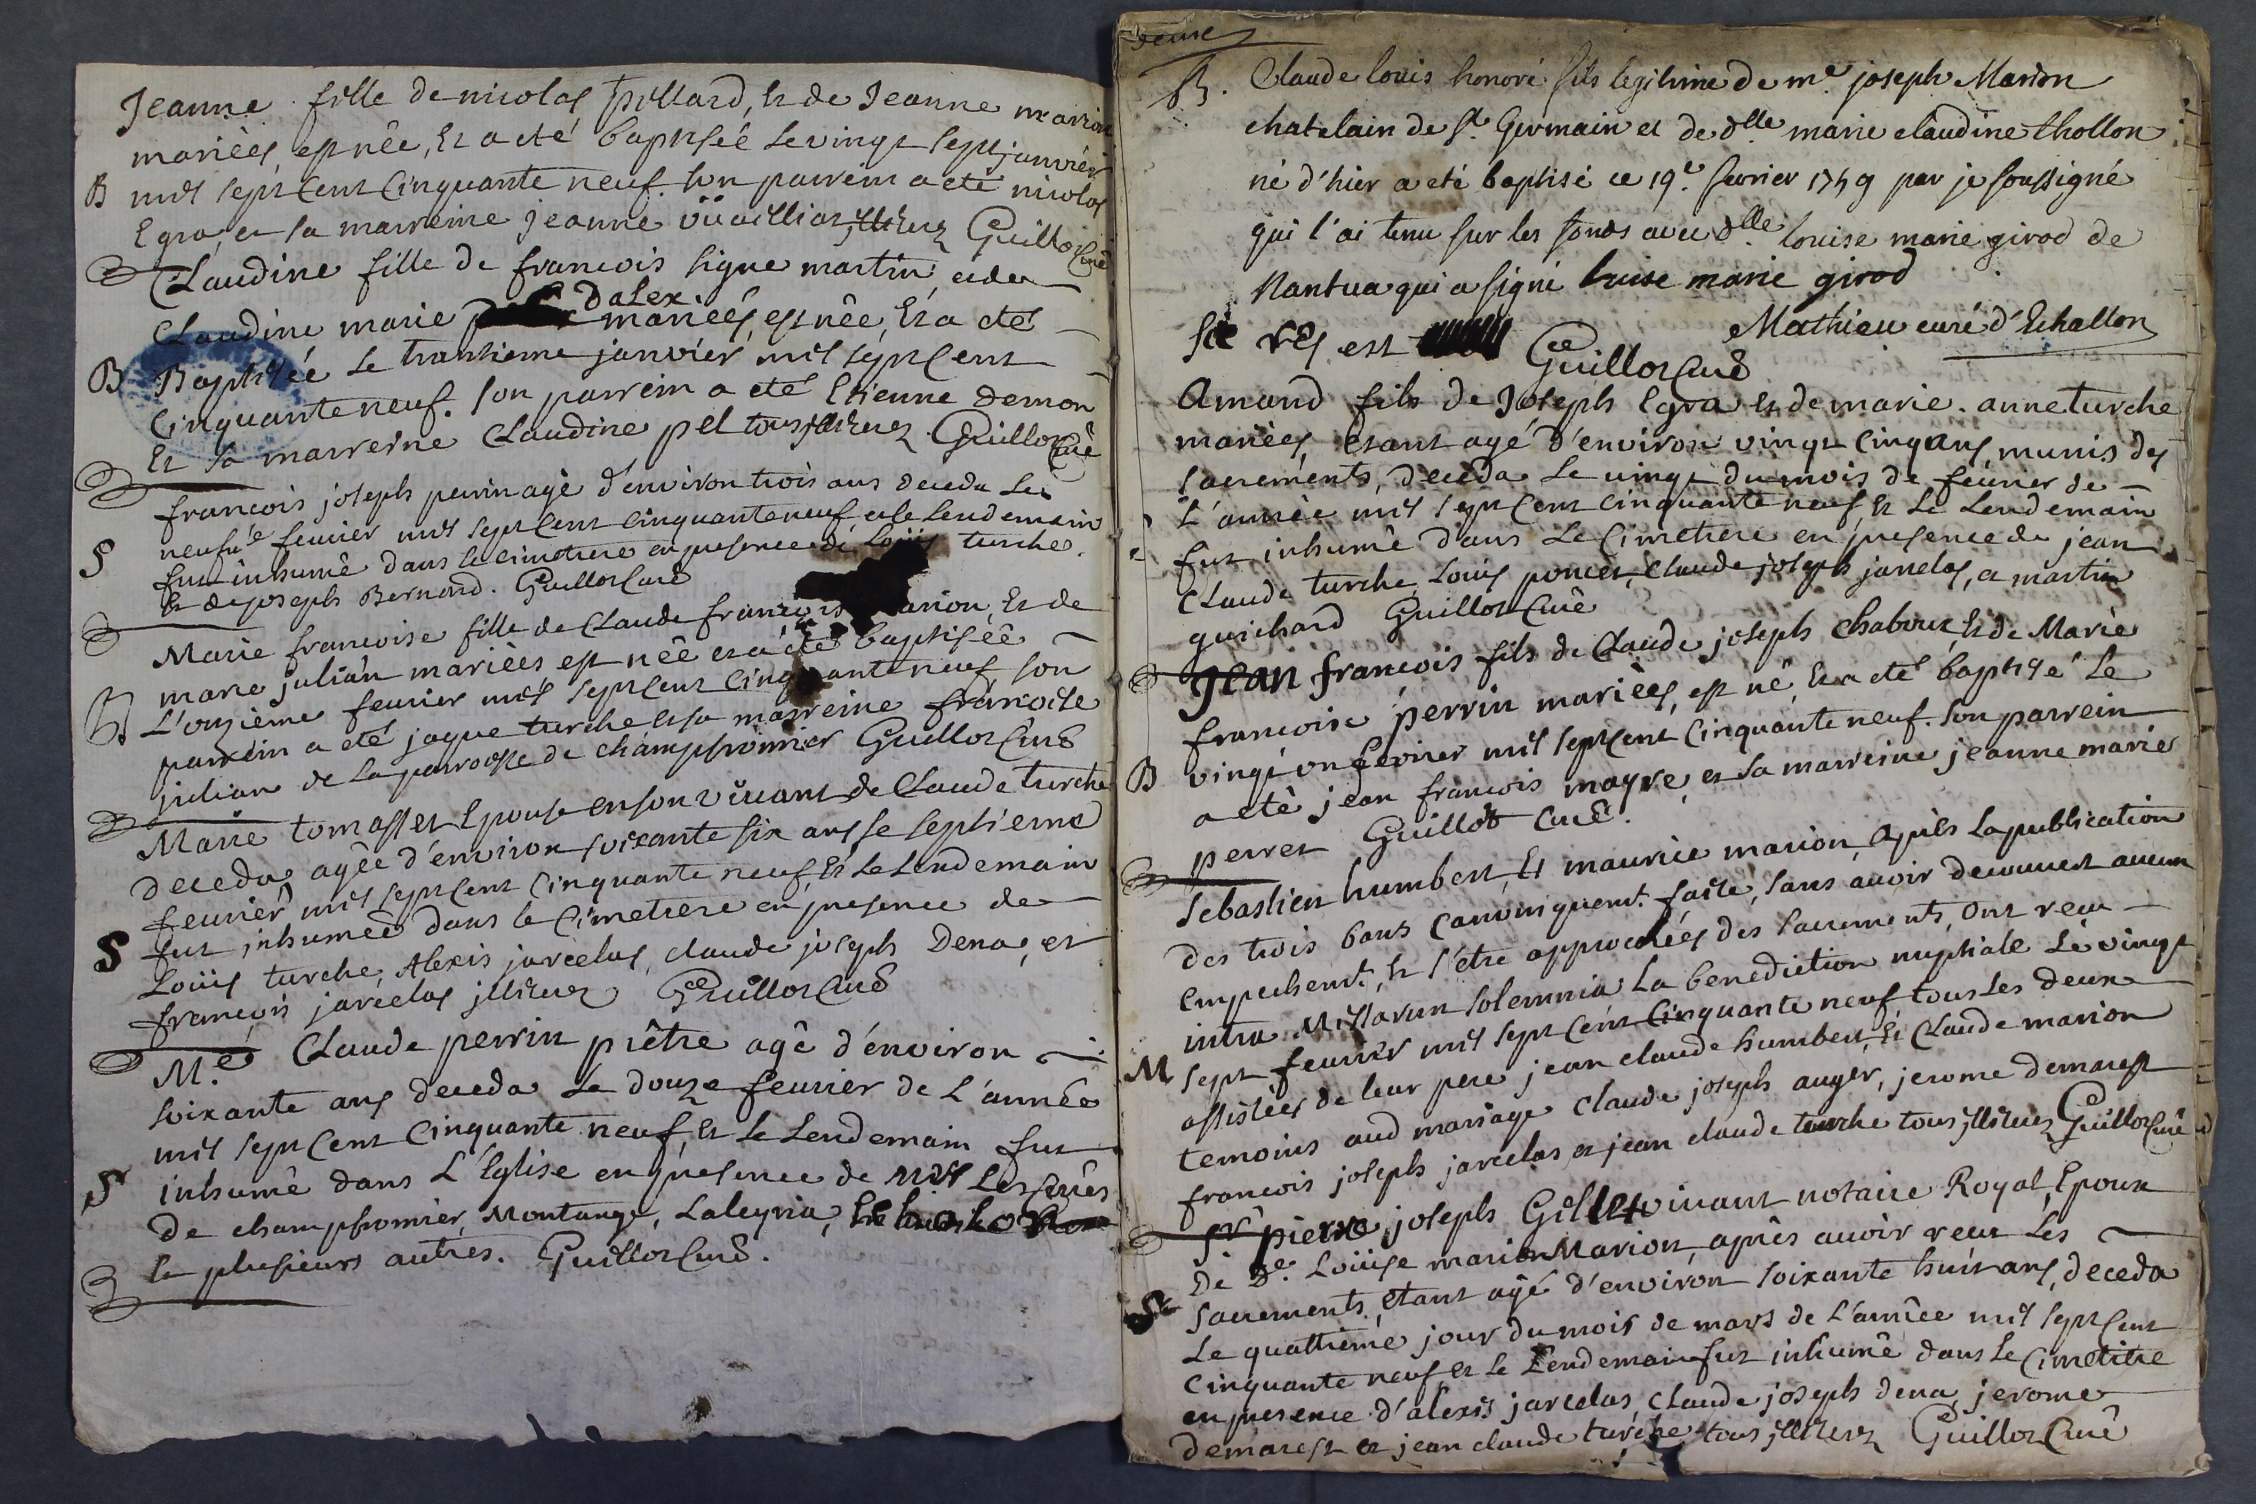 Jeanne fille de nicolas pillard, et de Jeanne marion
mariées, est née, Et a eté baptisée le vingt sept janvier
B mil sept cent cinquante neuf. son parrein a eté nicolas
Egra, et sa marreine jeanne illitérez Guillot Curé
Claudine fille de francois figue martin, et de
Claudine marie Dalex mariées, est née, Et a eté
B Baptisée le trantieme janvier mil sept cent
Cinquante neuf. son parrein a eté Etienne demon
Et sa marreine Claudine pel tous illitérez Guillot Curé
francois joseph perrin agé d'environ trois ans deceda le
neufvie fevrier mil sept cent cinquante neuf et le lendemain
S fut inhumé dans le cimetiere en presence de Loüis turche
Et de joseph Bernard. Guillot Curé
Marie francoise fille de Claude francois marion, Et de
marie julian mariées est née et a eté baptisée
B L'onzieme fevrier mil sept cent cinquante neuf, son
parrein a eté jaque turche et sa marreine francoise
julian de la parroisse de champfromier Guillot Curé
Marie tomasset Epouse en son vivant de Claude turche
deceda agée d'environ soixante six ans le septieme
fevrier mil sept cent cinquante neuf, Et le Lendemain
S fut inhumée dans le Cimetiere en presence de
Loüis turche, Alexis jarcelas, claude joseph Dena, et
francois jarcelas illitérez Guillot Curé
M.e Claude perrin prêtre agé d'environ
soixante ans deceda le douze fevrier de L'année
mil sept cent cinquante neuf, Et le Lendemain fut
S inhumé dans L'Eglise en presence de mes Les curés
de champfromier, Montange, Laleyria,
Et plusieurs autres. Guillot Curé.
deuxe
B. Claude louis honoré fils legitime de me. joseph Marion
chatelain de St. Germain et de dlle marie claudine thollon
né d'hier a eté baptisé ce 19e. fevrier 1759 par je soussigné
qui l'ai tenu sur les fonds avec dlle louise marie girod de
Nantua qui a signé louise marie girod
Mathieu curé d'Echallon
est Guillot Curé
Amand fils de Joseph Egra et de marie anne turche
mariées, etant agé d'environ vingt cinq ans, munis des
sacrements, deceda le vingt du mois de fevrier de
L'année mil sept cent cinquante neuf Et le Lendemain
fut inhumé dans le Cimetiere en presence de jean
Claude turche, Louis poncet, Claude joseph jarcelas, et martin
guichard Guillot Curé
Jean francois fils de Claude joseph Chabout, Et de Marie
francoise perrin mariées, est né, Et a eté baptisé le
B vingt un fevrier mil sept cent cinquante neuf. son parrein
a eté jean francois mayre, et sa marreine jeanne marie
perret Guillot Curé.
Sebastien humbert, Et maurice marion, après la publication
des trois bans canoniquemt. faite, sans avoir decouvert aucun
empechemt., et s'etre approchées des sacrements, ont recu
intra Missarum solemnia La benediction nuptiale Le vingt
M sept fevrier mil sept cent cinquante neuf tous les deux
assistées de leur pere jean claude humbert, Et Claude marion
temoins aud mariage Claude joseph auger, jerome demarest
francois joseph jarcelas et jean claude turche tous illitérez Guillot Curé
Sr. pierre joseph Gillet vivant notaire Royal, Epoux
De De. Loüise marion Marion, après avoir recu les
S sacrements, etant agé d'environ soixante huit ans, deceda
Le quatrieme jour du mois de mars de L'année mil sept cent
cinquante neuf, et le Lendemain fut inhumé dans le cimetiere
en presence d'alexis jarcelas, Claude joseph dena, jerome
demarest et jean claude turche tous illitérez Guillot Curé